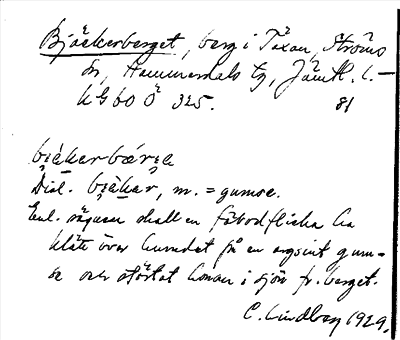 Bjäckerberget, berg i Täxan, Ströms
sn, Hammerdals tg, Jämtl. l. –
KG 60 Ö 325. 81
Dial. bjäkar, m. = gumse.
Enl. sägnen skall en fäbodflicka ha
kläte över huvudet på en argsint gum-
se och störtat honom i sjön fr. berget.
C. Lindberg 1929.